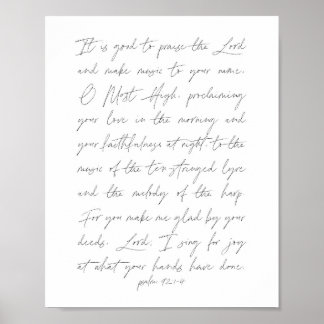 It is good to praise the Lord
and make music to your name,
O Most High, proclaiming
your love in the morning and
your faithfulness at night, to the
music of the ten-stringed lyre
and the melody of the harp
For you make me glad by your
deeds, Lord, I sing for joy
at what your hands have done.
psalm 92:1-4